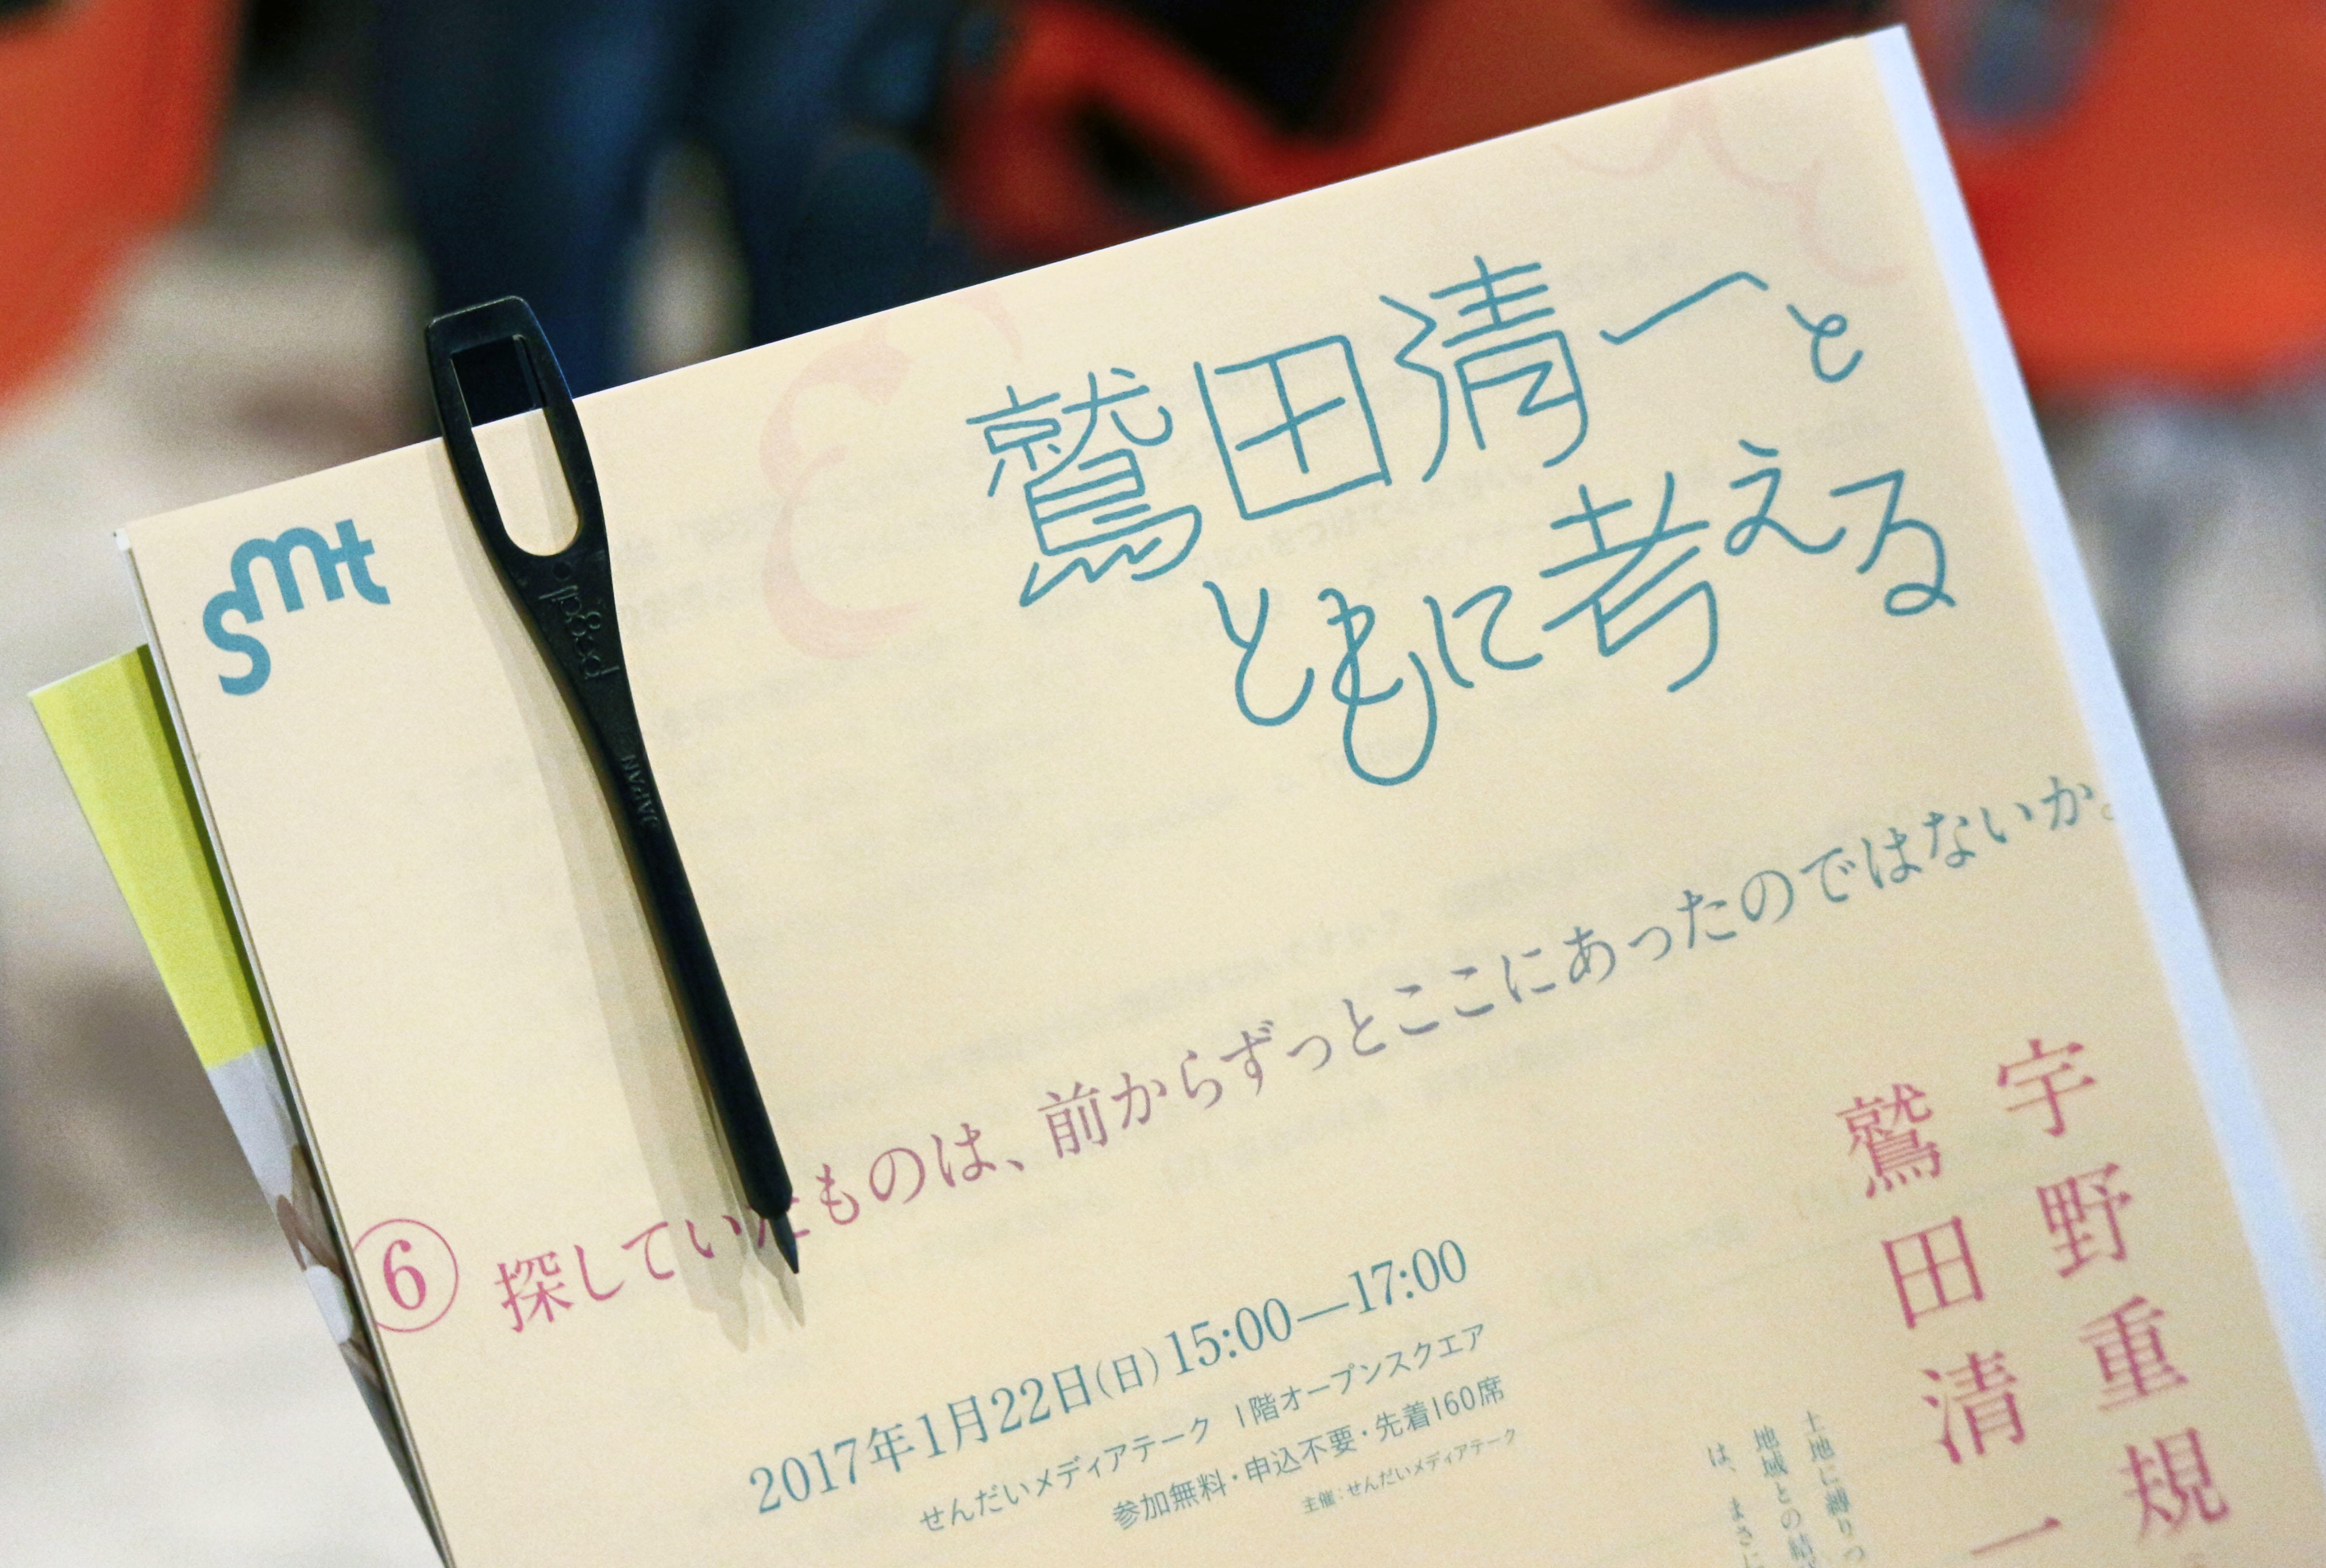 smt
鷲田清一と
ともに考える
⑥ 探していたものは、前からずっとここにあったのではないか。
2017年1月22日(日) 15:00—17:00
せんだいメディアテーク 1階オープンスクエア
参加無料・申込不要・先着160席
主催：せんだいメディアテーク
宇野重規
鷲田清一
土地に縛りつ
地域との結
は、まさに
JAPAN